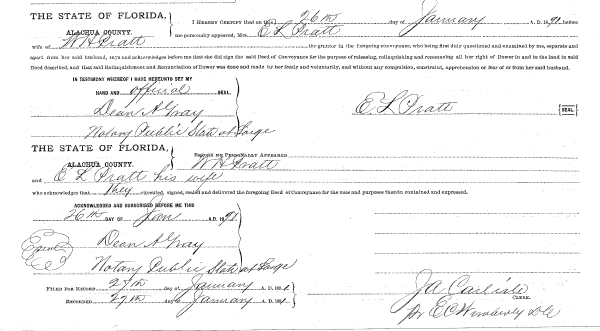 THE STATE OF FLORIDA,
ALACHUA COUNTY.
I HEREBY CERTIFY that on this 26th day of January A. D. 1891 before
me personally appeared, Mrs. E L Pratt
wife of W H Pratt the grantor in the foregoing conveyance, who being first duly questioned and examined by me, separate and
apart from her said husband, says and acknowledges before me that she did sign the said Deed of Conveyance for the purpose of releasing, relinquishing and renouncing all her right of Dower in and to the land in said
Deed described, and that said Relinquishment and Renunciation of Dower was done and made by her freely and voluntarily, and without any compulsion, constraint, apprehension or fear of or from her said husband.
IN TESTIMONY WHEREOF I HAVE HEREUNTO SET MY
HAND AND official SEAL.
Dean A Gray
Notary Public State at Large
E. L Pratt SEAL
THE STATE OF FLORIDA,
ALACHUA COUNTY.
BEFORE ME PERSONALLY APPEARED
W H Pratt
and E L Pratt his wife
who acknowledges that they executed, signed, sealed and delivered the foregoing Deed of Conveyance for the uses and purposes therein contained and expressed.
ACKNOWLEDGED AND SUBSCRIBED BEFORE ME THIS
26th DAY OF Jan A.D. 1891
Dean A Gray
Notary Public State at Large
FILED FOR RECORD 27th day of January A. D. 1891
RECORDED 27th day of January A. D. 1891
J A Carlisle
CLERK.
Pr E C Wimberly D C